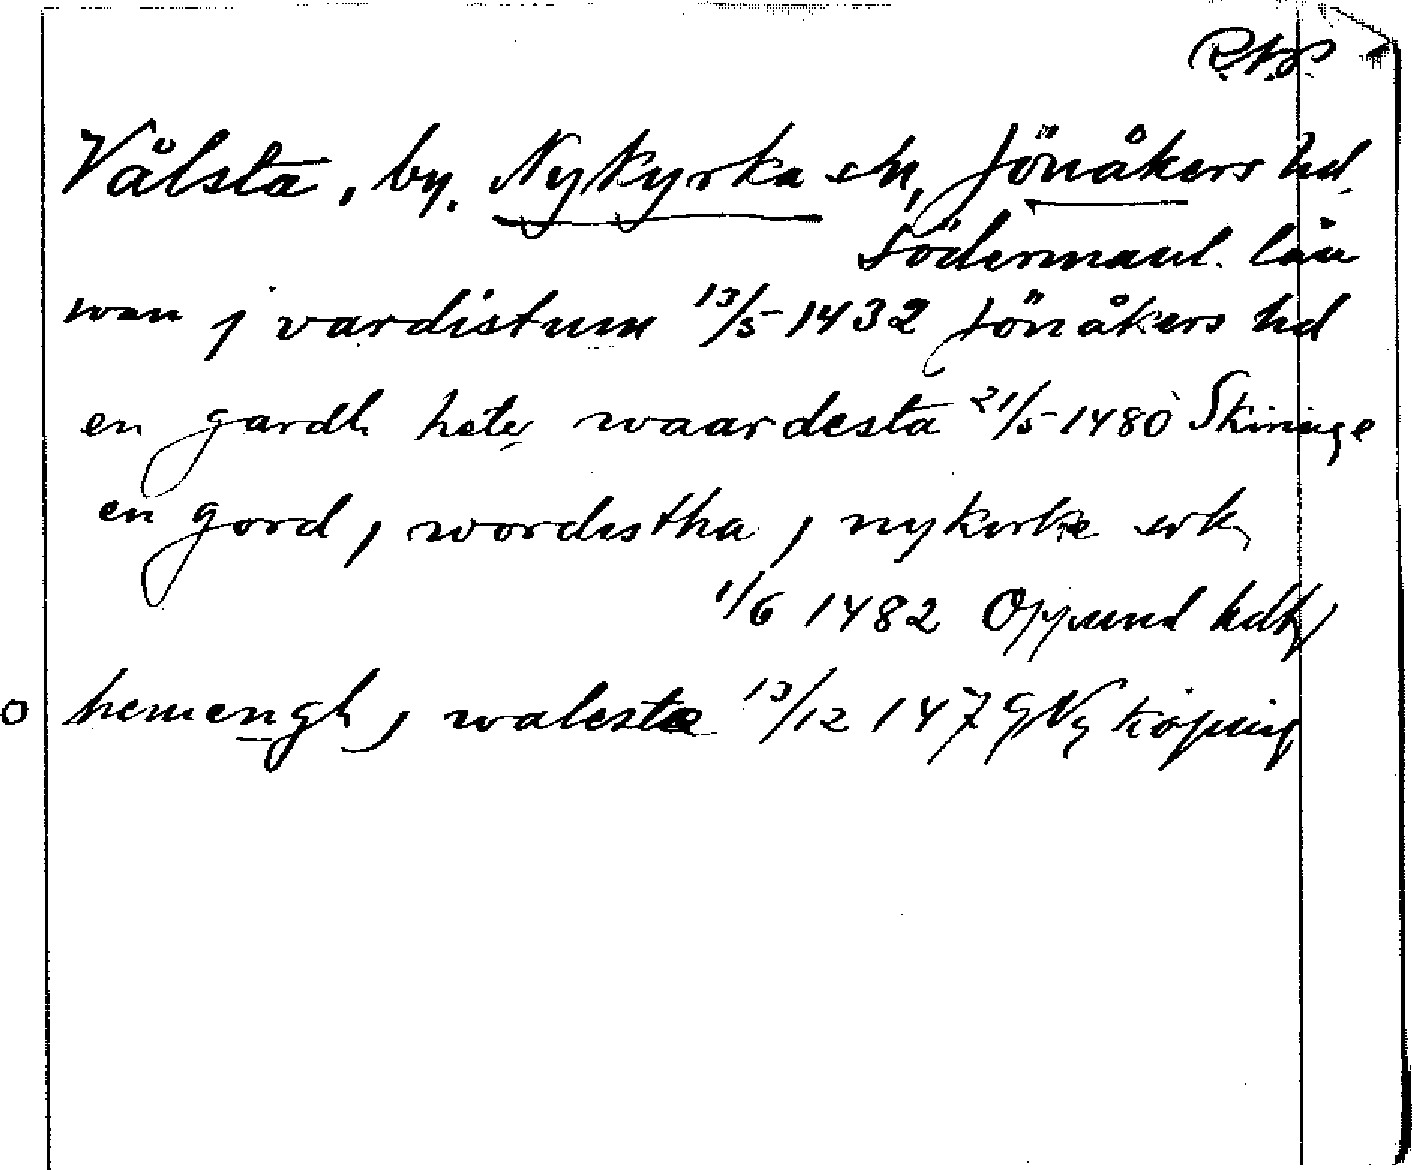 R.A.P.
Vålsta, by. Nykyrka sn, Jönåkers hd.
Södermanl. län
wan j vardistum 13/5 1432 Jönåkers hd
en gardh heter waardesta 21/5 1480 Skiringe
en gord j wordistha j nykirke sokn
1/6 1482 Oppund hdg
o hemengh j walesta 13/12 1479 Nyköping